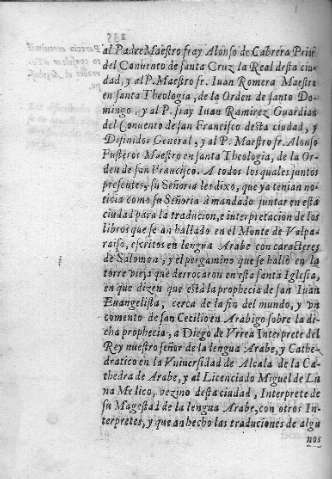 al Padre Maestro fray Alonso de Cabrera Prior
del Conuento de santa Cruz la Real desta ciu-
dad, y al P. Maestro fr. Iuan Romera Maestro
en santa Theologia, de la Orden de santo Do
mingo, y al P. fray Iuan Ramirez Guardian
del Conuento de san Francisco desta ciudad, y
Difinidor General, y al P. Maestro fr. Alonso
Fusteros Maestro en santa Theologia, de la Or-
den de san Francisco. A todos los quales juntos
presentes, su Señoria les dixo, que ya tenian no-
ticia como su Señoria à mandado juntar en esta
ciudad para la traducion, e interpretacion de los
libros que se an hallado en el Monte de Valpa-
raiso, escritos en lengua Arabe con caracteres
de Salomon, y el pergamino que se hallò en la
torre vieja que derrocaron en esta santa Iglesia,
en que dizen que està la prophecia de san Iuan
Euangelista, cerca de la fin del mundo, y vn
comento de san Cecilio en Arabigo sobre la di-
cha prophecia, a Diego de Vrrea Interprete del
Rey nuestro señor de la lengua Arabe, y Cathe-
dratico en la Vniuersidad de Alcala de la Ca-
thedra de Arabe, y al Licenciado Miguel de Lu
na Medico, vezino desta ciudad, Interprete de
su Magestad de la lengua Arabe, con otros In-
terpretes, y que an hecho las traduciones de algu
nos